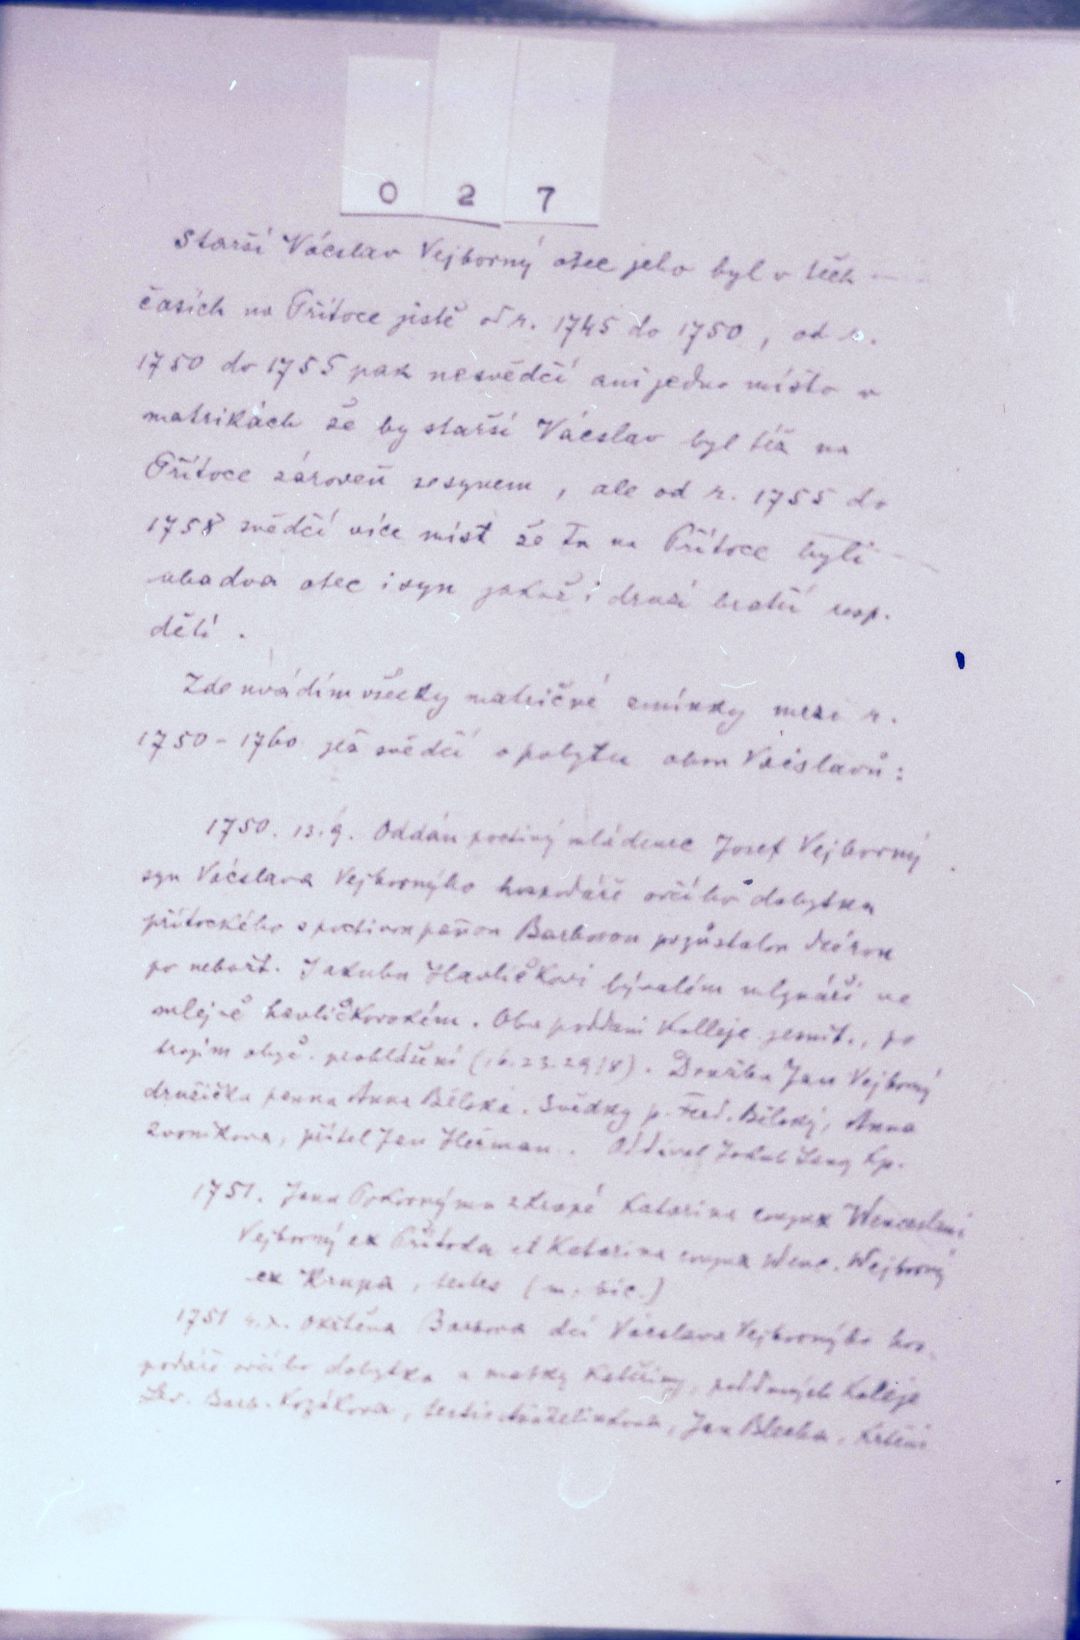 0 2 7
Starší Václav Vejborný otec jeho byl v těch
časích na Přítoce jistě od r. 1745 do 1750, od r.
1750 do 1755 pak nesvědčí ani jedno místo v
matrikách že by starší Václav byl též na
Přítoce zároveň se synem, ale od r. 1755 do
1758 svědčí více míst že tu na Přítoce byli
obadva otec i syn jakož i druzí bratří resp.
děti.
Zde uvádím všecky matričné zmínky mezi r.
1750 - 1760 jež svědčí o pobytu obou Václavů:
1750. 13. 9. Oddán poctivý mládenec Josef Vejborný
syn Václava Vejborného hospodáře ovčího dobytka
přítockého s poctivou pannou Barborou pozůstalou dcerou
po nebožt. Jakubu Havlíčkovi bývalém mlynáři ve
mlejně havlíčkovském. Oba poddaní Kolleje jesuit., po
trojím obyč. prohlášení . Družba Jan Vejborný
družička panna Anna Bělská. Svědky p. Ferd. Bělský, Anna
Zvoníkova, přítel Jan Heřman. Oddával Jakub kp.
1751. Jana Pokorný Katarina conjux Wenceslai
Vejborný ex Přítoka et Katarina conjux Wenc. Wejborný
ex Krupa, testes (m. sic.)
1751 okřtěna Barbora dci Václava Vejborného hos-
podáře ovčího dobytka a matky Kateřiny, poddaných Koleje
Lev. Barb. Kozákova, testis , Jan Blecha, křtěni